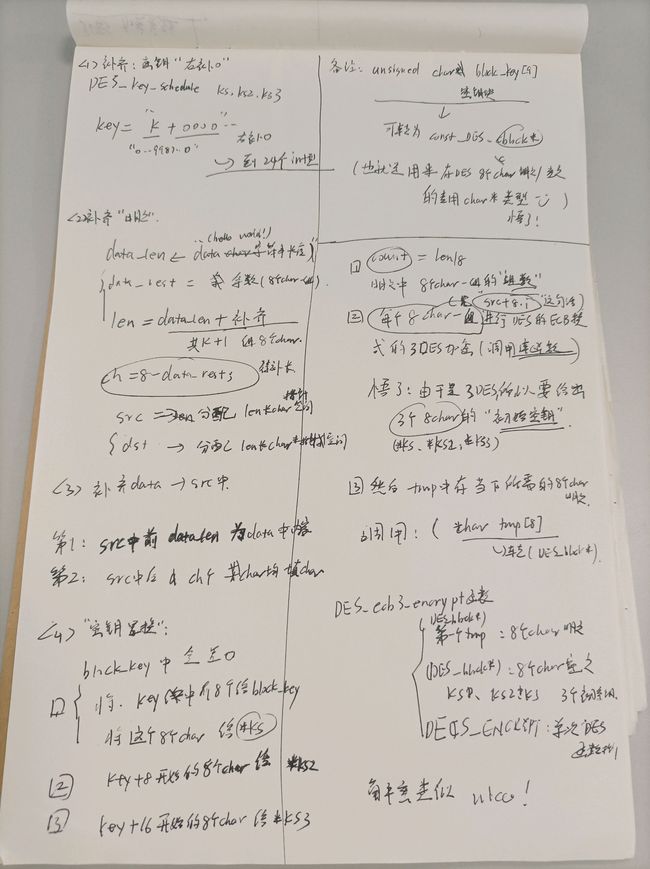 <1> 补齐: 密钥"右补0"
DES_key_schedule ks,ks2,ks3
key = "K + 0000"
"0...9987...0" 右补0
→ 到24个
<2>补齐"明文".
(hello world!)
data_len ← data 字符串长度
data_rest = 余数(8个char一组).
len = data_len + 补齐
共K+1组8个char.
ch = 8 - data_rest; 待补长
src → 分配 len*char 空间
dst → 分配 len*char 空间
<3> 补齐data → src中.
第1: src中前 data_len 为data中内容
第2: src中后 ch个 char均填char
<4> "密钥置换":
block_key 中全至0
1 将 key 中前8个给block_key
将这个8个char 给 *ks
2 key+8开始的8个char 给 *ks2
3 key+16开始的8个char 给 *ks3
备注: unsigned char block_key[9]
密钥块
↓
可转为 const_DES_cblock*
(也就是用来在DES 8个char明文/密文
的专用char*类型 )
悟了!
1 count = len/8
明文中 8个char一组的"组数"
src+8.i 这句话
2 每个8char一组 进行DES的ECB模
式的3DES加密 (调用库函数)
悟了: 由于是3DES所以要给出
3个8char的"初始密钥"
(*ks, *ks2, *ks3)
3 然后 tmp中存当下所需的8个char
明文.
调用: ( char tmp[8]
(DES_block*)
DES_ecb3_encrypt函数
(DES_block*)
第一个tmp: 8个char明文
(DES_block*): 8个char密文
KS1、KS2、KS3 3个密钥
DES_ENCRYPT: 单次DES
解密类似 nice!